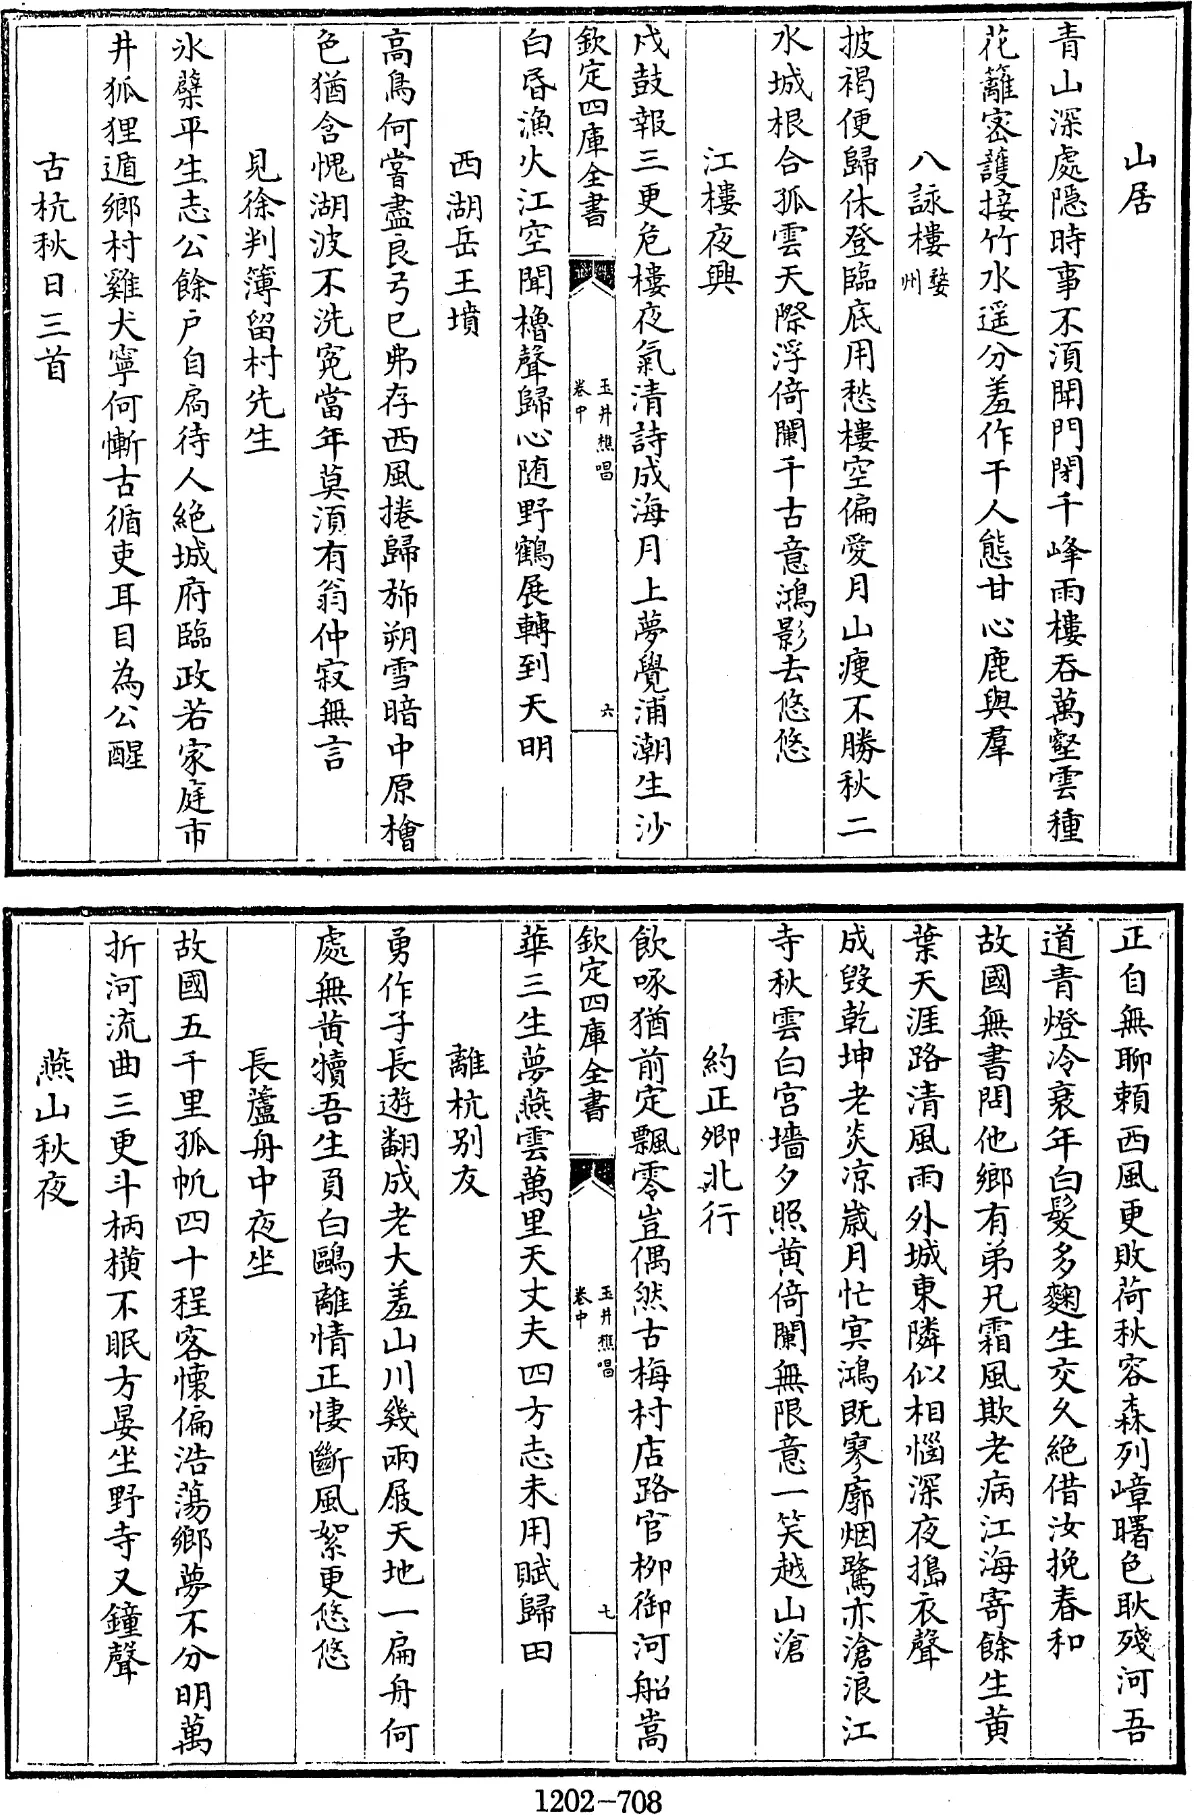 山居
青山深處隱時事不湏聞門閉千峰雨樓吞萬壑雲種
花籬宻護接竹水遥分羞作干人態甘心鹿與羣
八詠樓婺州
披褐便歸休登臨底用愁樓空偏愛月山痩不勝秋二
水城根合孤雲天際浮倚闌千古意鴻影去悠悠
江樓夜興
戍鼓報三更危樓夜氣清詩成海月上夢覺浦潮生沙
欽定四庫全書
玉井樵唱
卷中
六
白昏漁火江空聞櫓聲歸心随野鶴展轉到天明
西湖岳王墳
高鳥何嘗盡良弓已弗存西風捲歸斾朔雪暗中原檜
色猶含愧湖波不洗寃當年莫湏有翁仲寂無言
見徐判簿留村先生
氷蘗平生志公餘户自扃待人絶城府臨政若家庭市
井狐狸遁鄉村雞犬寧何慚古循吏耳目為公醒
古杭秋日三首
正自無聊賴西風更敗荷秋容森列嶂曙色耿殘河吾
道青燈冷衰年白髮多麴生交久絶借汝挽春和
故國無書問他鄉有弟兄霜風欺老病江海寄餘生黄
葉天涯路清風雨外城東隣似相惱深夜搗衣聲
成毁乾坤老炎凉嵗月忙㝠鴻既寥廓烟鷺亦滄浪江
寺秋雲白宫墻夕照黄倚闌無限意一笑越山滄
約正卿北行
飲啄猶前定飄零豈偶然古梅村店路官栁御河船嵩
欽定四庫全書
玉井樵唱
卷中
七
華三生夢燕雲萬里天丈夫四方志未用賦歸田
離杭别友
勇作子長遊翻成老大羞山川幾兩屐天地一扁舟何
處無黄犢吾生負白鷗離情正悽斷風絮更悠悠
長蘆舟中夜坐
故國五千里孤帆四十程客懷偏浩蕩鄉夢不分明萬
折河流曲三更斗柄横不眠方晏坐野寺又鐘聲
燕山秋夜
1202-708